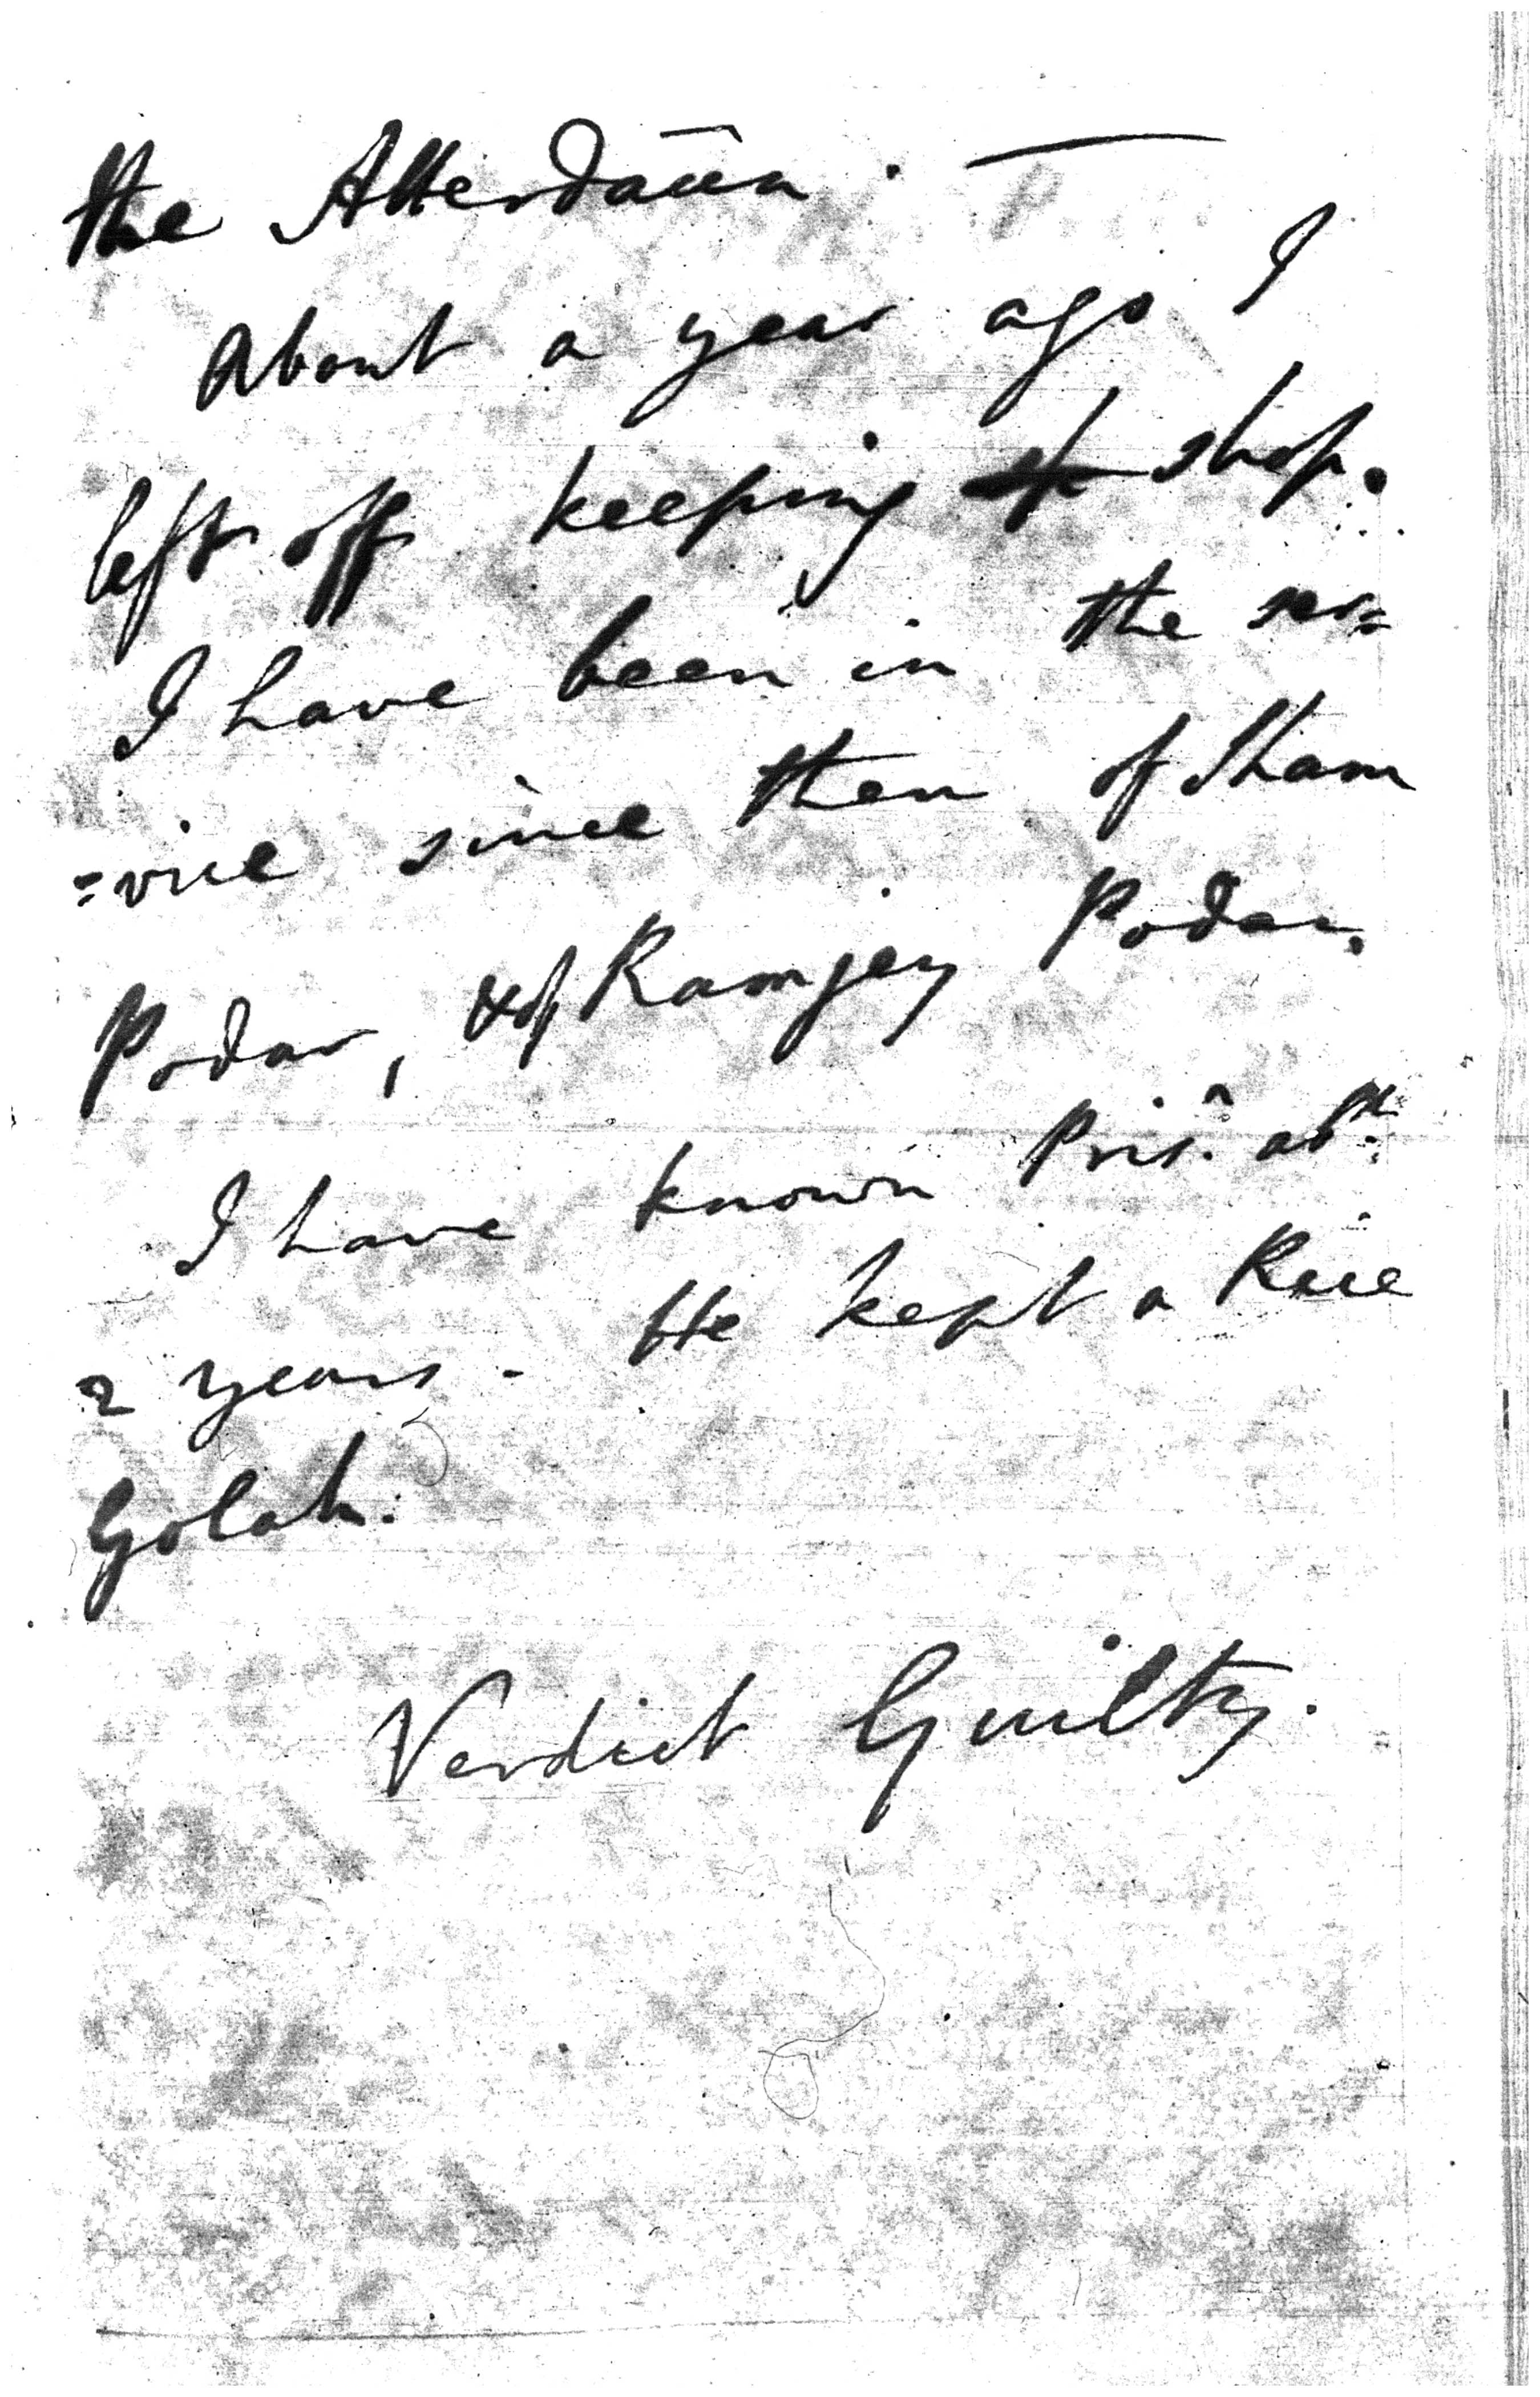 the Atterdaun. —
About a year ago I
left off keeping sh shop.
I have been in the ser=
=vice since then of Sham
Podar, & of Ramjey Podar.
I have known Pris^n. ab^t.
2 years. He kept a Rice
Golah.
Verdict Guilty.